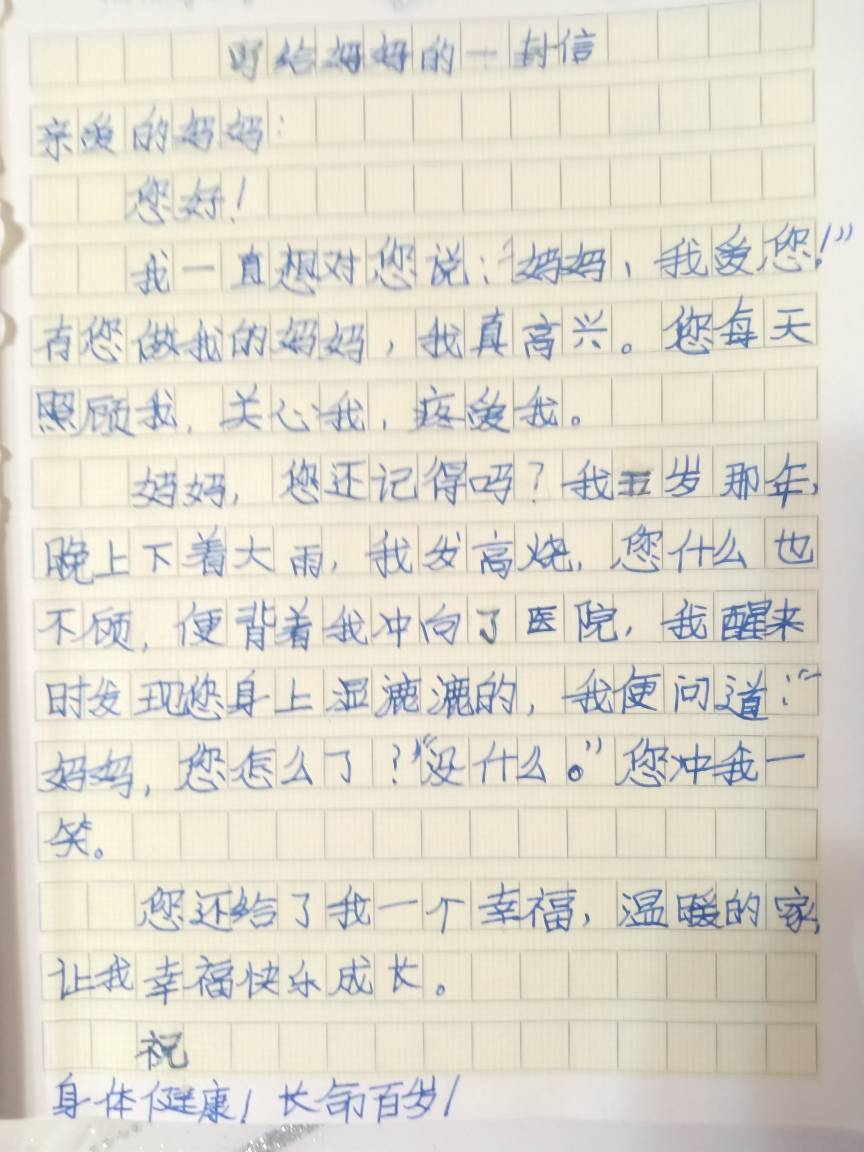 写给妈妈的一封信
亲爱的妈妈:
您好!
我一直想对您说:“妈妈,我爱您!”
有您做我的妈妈,我真高兴。您每天
照顾我,关心我,疼爱我。
妈妈,您还记得吗?我五岁那年,
晚上下着大雨,我发高烧,您什么也
不顾,便背着我冲向了医院,我醒来
时发现您身上湿漉漉的,我便问道:“
妈妈,您怎么了?”“没什么。”您冲我一
笑。
您还给了我一个幸福,温暖的家,
让我幸福快乐成长。
祝
身体健康!长命百岁!